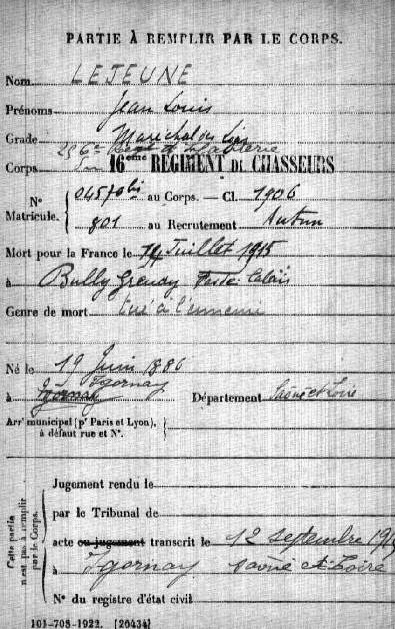 PARTIE À REMPLIR PAR LE CORPS.
Nom LEJEUNE
Prénoms Jean Louis
Grade Maréchal des Logis
256e Régt d'Infanterie
Corps 16ème RÉGIMENT DE CHASSEURS
N° 04570bis au Corps. — Cl. 1906
Matricule. 801 au Recrutement Autun
Mort pour la France le 14 Juillet 1915
à Bully Grenay Pas de Calais
Genre de mort tué à l'ennemi
Né le 19 Juin 1886
à Igornay Département Saône et Loire
Arrt municipal (pr Paris et Lyon),
à défaut rue et N°.
Cette partie
n'est pas à remplir
par le Corps.
Jugement rendu le
par le Tribunal de
acte ou jugement transcrit le 12 septembre
à Igornay Saône et Loire
N° du registre d'état civil
101-708-1922. [26434]